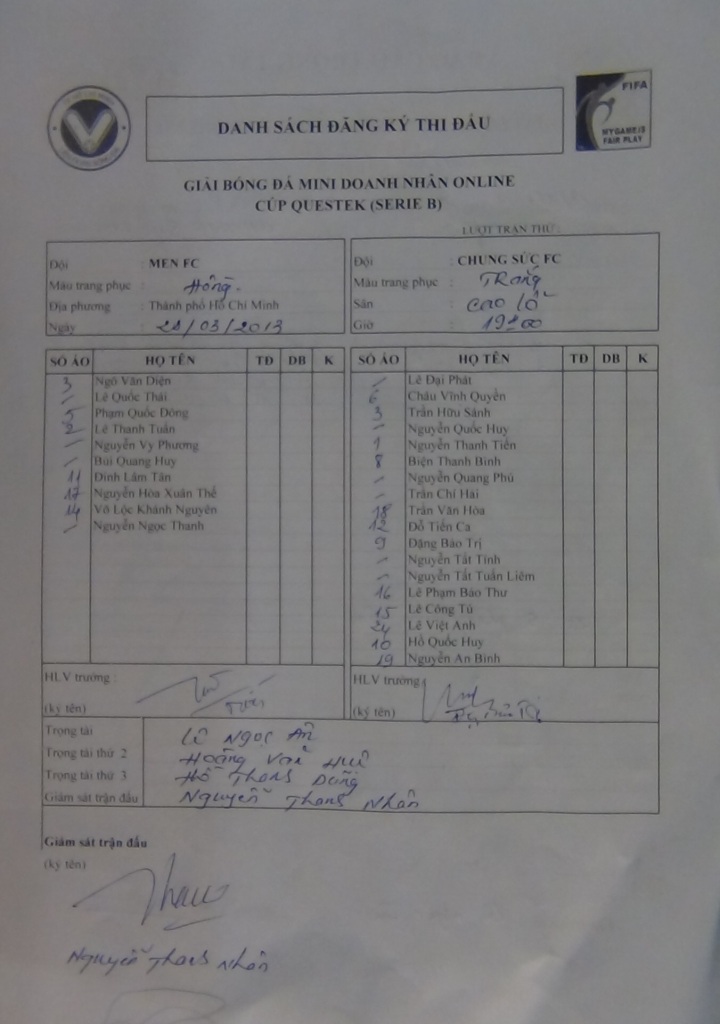 FIFA
MY GAME IS
FAIR PLAY
DANH SÁCH ĐĂNG KÝ THI ĐẤU
GIẢI BÓNG ĐÁ MINI DOANH NHÂN ONLINE
CÚP QUESTEK (SERIE B)
LƯỢT TRẬN THỨ :
Đội : MEN FC
Màu trang phục : Hồng.
Địa phương : Thành phố Hồ Chí Minh
Ngày : 28/03/2013
Đội : CHUNG SỨC FC
Màu trang phục : Trắng
Sân : Cao Lỗ
Giờ : 19h00
SỐ ÁO HỌ TÊN TĐ DB K
3 Ngô Văn Diện
/ Lê Quốc Thái
5 Phạm Quốc Đông
2 Lê Thanh Tuấn
/ Nguyễn Vy Phương
/ Bùi Quang Huy
11 Đinh Lâm Tân
17 Nguyễn Hòa Xuân Thế
14 Võ Lộc Khánh Nguyên
/ Nguyễn Ngọc Thanh
HLV trưởng :
(ký tên)
SỐ ÁO HỌ TÊN TĐ DB K
/ Lê Đại Phát
6 Châu Vĩnh Quyền
3 Trần Hữu Sánh
/ Nguyễn Quốc Huy
1 Nguyễn Thanh Tiền
8 Biện Thanh Bình
/ Nguyễn Quang Phú
/ Trần Chí Hải
18 Trần Văn Hòa
12 Đỗ Tiến Ca
9 Đặng Bảo Trị
/ Nguyễn Tất Tính
/ Nguyễn Tất Tuấn Liêm
16 Lê Phạm Bảo Thư
15 Lê Công Tú
24 Lê Việt Anh
10 Hồ Quốc Huy
19 Nguyễn An Bình
HLV trưởng
(ký tên)
Trọng tài Lê Ngọc Ẩn
Trọng tài thứ 2 Hoàng Văn Huê
Trọng tài thứ 3 Hồ Thanh Dũng
Giám sát trận đấu Nguyễn Thanh Nhân
Giám sát trận đấu
(ký tên)
Nguyễn Thanh Nhân